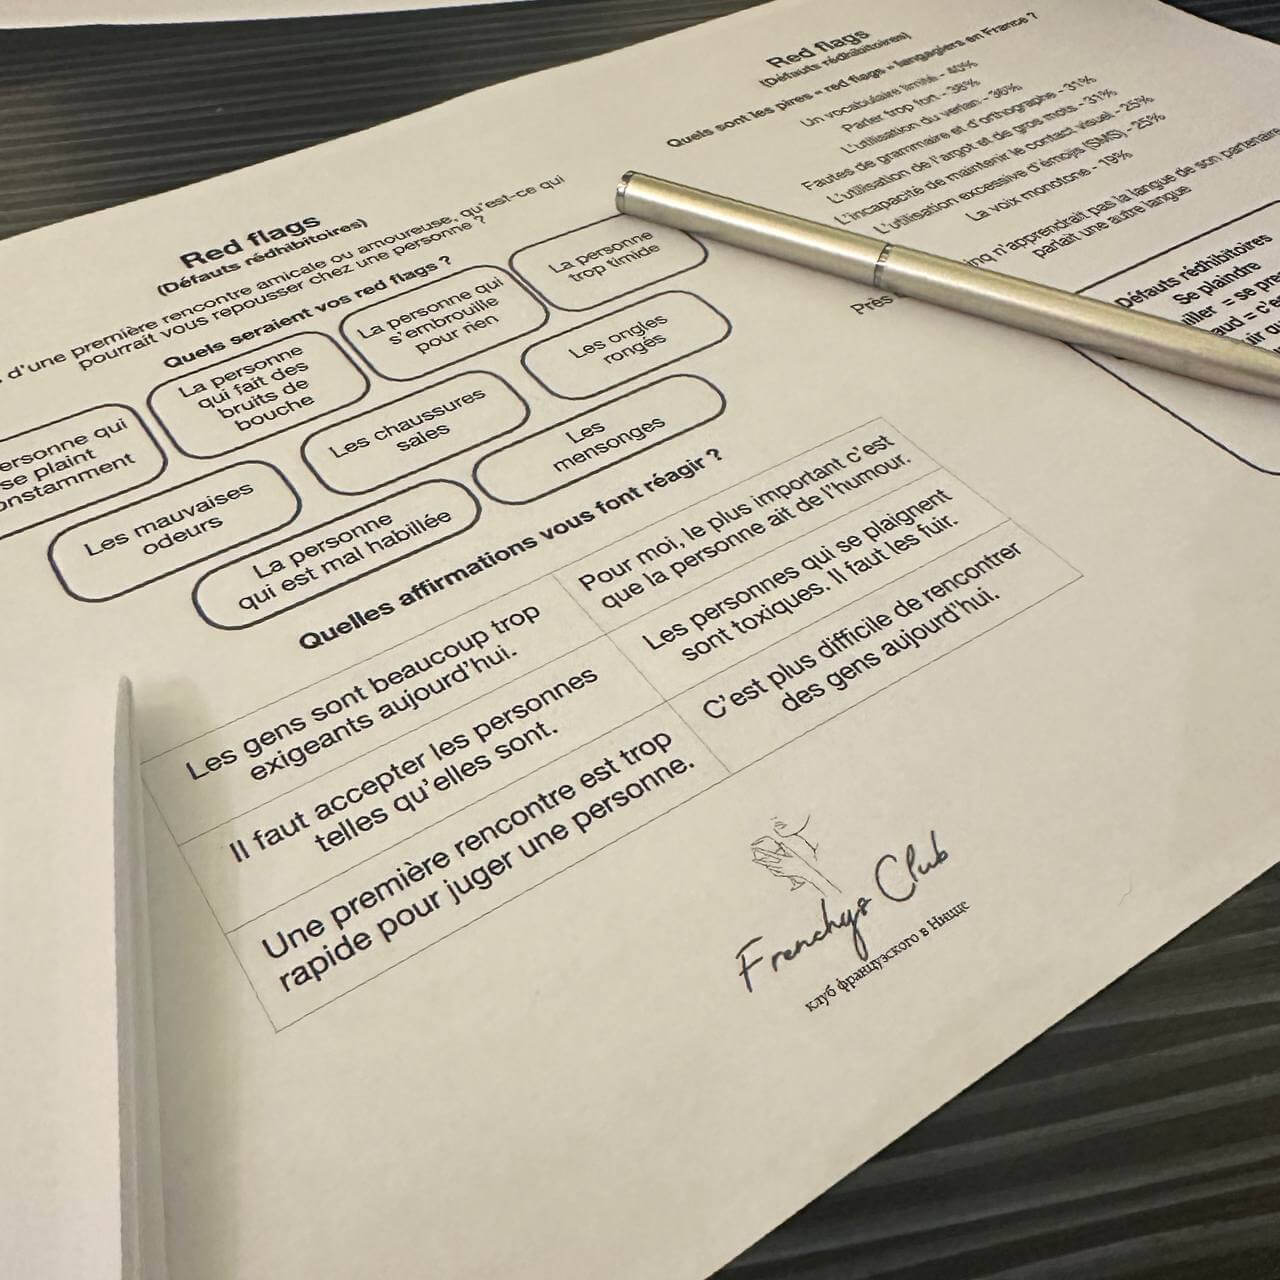 Red flags
(Défauts rédhibitoires)
d'une première rencontre amicale ou amoureuse, qu'est-ce qui
pourrait vous repousser chez une personne ?
Quels seraient vos red flags ?
La personne
trop timide
La personne qui
s'embrouille
pour rien
La personne
qui fait des
bruits de
bouche
ersonne qui
se plaint
onstamment
Les ongles
rongés
Les chaussures
sales
Les mauvaises
odeurs
Les
mensonges
La personne
qui est mal habillée
Quelles affirmations vous font réagir ?
Les gens sont beaucoup trop
exigeants aujourd'hui.
Pour moi, le plus important c'est
que la personne ait de l'humour.
Il faut accepter les personnes
telles qu'elles sont.
Les personnes qui se plaignent
sont toxiques. Il faut les fuir.
Une première rencontre est trop
rapide pour juger une personne.
C'est plus difficile de rencontrer
des gens aujourd'hui.
Frenchys Club
клуб французского в Ницце
Red flags
(Défauts rédhibitoires)
Quels sont les pires « red flags » langagiers en France ?
Un vocabulaire limité - 40%
Parler trop fort - 38%
L'utilisation du verlan - 36%
Fautes de grammaire et d'orthographe - 31%
L'utilisation de l'argot et de gros mots - 31%
L'incapacité de maintenir le contact visuel - 25%
L'utilisation excessive d'émojis (SMS) - 25%
La voix monotone - 19%
Près
inq n'apprendrait pas la langue de son partenaire
parlait une autre langue
Défauts rédhibitoires
Se plaindre
iller = se pre
aud = c'e
uir qu